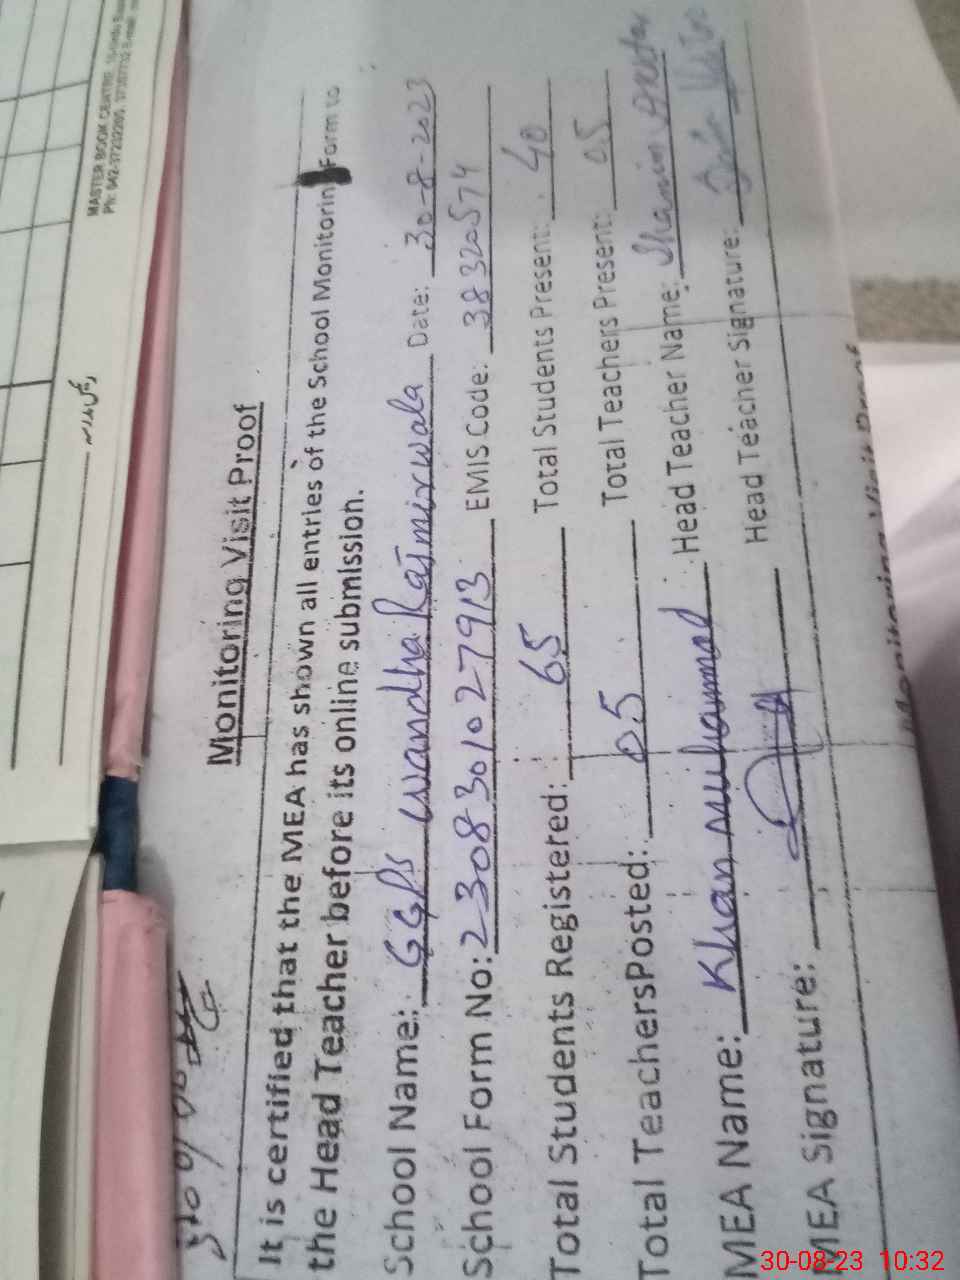 MASTER BOOK CENTRE,
Ph: 042-37232205,
Monitoring Visit Proof
It is certified that the MEA has shown all entries of the School Monitorin Form to
the Head Teacher before its online submission.
School Name: GGPS wandha Rajmirwala Date: 30-8-2023
School Form No: 2308301027913 EMIS Code: 38320574
Total Students Registered: 65 Total Students Present: 40
Total TeachersPosted: 05 Total Teachers Present: 05
MEA Name: Khan muhammad Head Teacher Name: Shamim
MEA Signature: Head Teacher Signature:
Monitoring Visit Proof
30-08-23 10:32